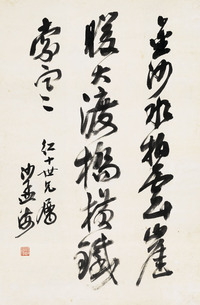 金沙水拍雲崖
暖大渡橋橫鐵
索寒
红十世兄屬
沙孟海